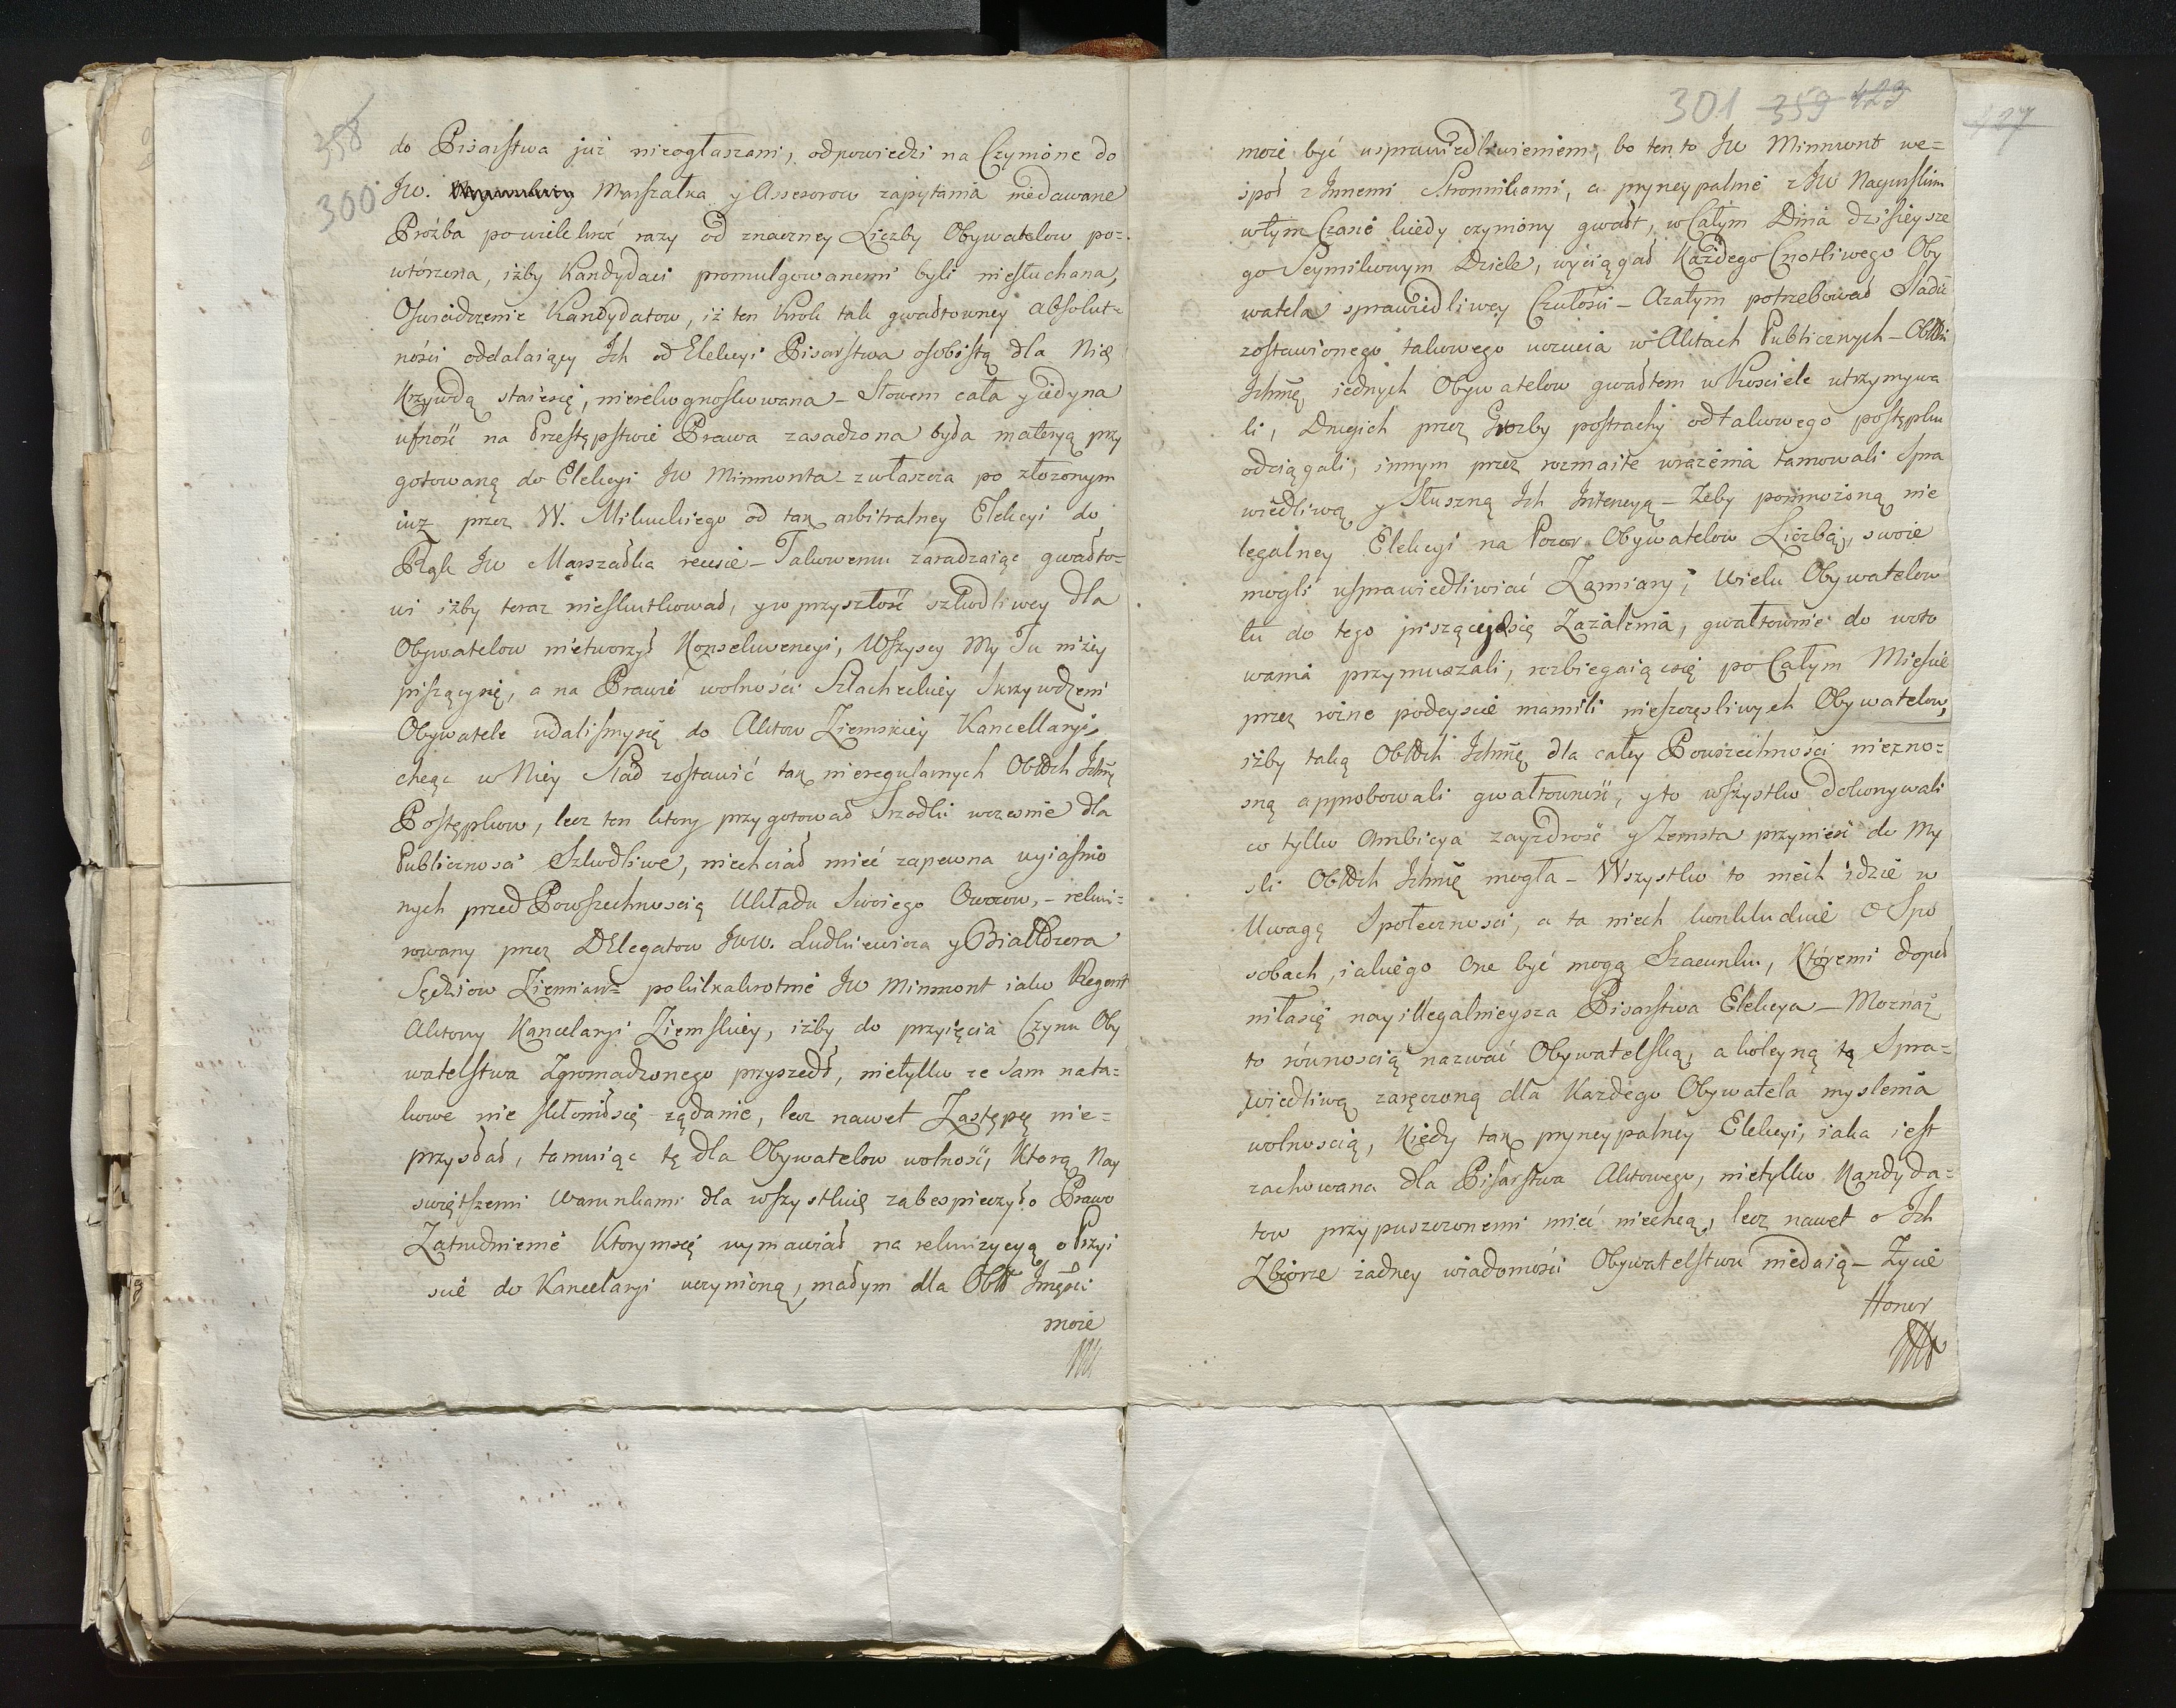 358
300
do Pisarstwa już nieogłaszani, odpowiedzi na Czynione do
Jw. Marszałka y Assesorow zapytania niedawane
Prózba powielekroć razy od znaczney Liczby Obywatelow po=
wtórzona, iżby Kandydaci promulgowanemi byli niesłuchana,
Oswiadczenie Kandydatow, iż ten Krok tak gwałtowney absolut=
ności oddalaiący Ich od Elekcyi Pisarstwa osobistą dla Nię
Krzywdą staiesię, nierekognoskowana – Słowem cała y iedyna
ufność na Przestępstwie Prawa zasadzona była materyą przy
gotowaną do Elekcyi Jw Minmonta – zwłaszcza po złozonym
iuz przez W. Mikuckiego od tak arbitralney Elekcyi do
Rąk Jw Marszałka recesie – Takowemu zaradzaiąc gwałto=
wi iżby teraz nieskutkował, y w przyszłość szkodliwey dla
Obywatelow nietworzył Konsekwencyi, Wszyscy My Tu niżey
piszącysię, a na Prawie wolności Szlacheckiey skrzywdzeni
Obywatele udalismysię do Aktow Ziemskiey Kancellaryi,
chcąc w Niey slad zostawić tak nieregularnych Obłłch Ichmę
Postępkow, lecz ten ktory przygotował Srzodki wczesnie dla
Publicznosci Szkodliwe, niechciał mieć zapewna wyiasnio
nych przed Powszechnoscią Układu Swoiego Owocow, – rekwi=
rowany przez DElegatow Jww. Ludkiewicza y Białłozora
Sędziow Ziemian= pokilkakrotnie Jw Minmont iako Regent
Aktowy Kancelaryi Ziemskiey, iżby do przyięcia Czynu Oby
watelstwa Zgromadzonego przyszedł, nietylko ze sam nata=
kowe nie skłoniłsię ządanie, lecz nawet Zastępcę nie=
przysłał, tamuiąc tę dla Obywatelow wolność, Ktorą Nay
swiętszemi Warunkami dla wszystkię zabespieczyło Prawo
Zatrudnienie Ktorymsię wymawiał na rekwizycyą o Przyi
scie do Kancelaryi uczynioną, małym dla Obłł Jmęści
może

301 359 423
427
może być usprawiedliwieniem, bo ten to Jw Minmont we=
społ z Innemi Stronnikami, a pryncypalnie z Jw Nagurskim
wtym Czasie kiedy czyniony gwałt, w Całym Dnia dzisieysze
go Seymikowym Dziele, wyciągał Każdego Cnotliwego Oby
watela sprawiedliwey Czułości – A zatym potrzebował sladu
zostawionego takowego uczucia w Aktach Publicznych – Obłłni
Ichmę, iednych Obywatelow gwałtem w Kosciele utrzymywa
li, Drugich przez Grozby postrachy od takowego postępku
odciągali, innym przez rozmaite wrazenia tamowali Spra
wiedliwą y Słuszną Ich Intencyą – Zeby pomnożoną nie
legalney Elekcyi na Pozor Obywatelow Liczbą, swoie
mogli usprawiedliwiać Zamiary; Wielu Obywatelow
tu do tego piszącychsię Zażalenia, gwałtownie do woto
wania przymuszali, rozbiegaiącsię po Całym Miescie
przez rożne podeyscie mamili nieszczęsliwych Obywatelow,
iżby taką Obłłch Ichmę dla całey Powszechności niezno=
sną approbowali gwałtowność, y to wszystko dokonywali
co tylko Ambicya zayzdrość y Zemsta przynieść do My
sli Obłłch Ichmę mogła – Wszystko to niech idzie w
Uwagę Społecznosci, a ta niech konkluduie o Spo
sobach, iakiego One być mogą Szacunku, Któremi dopeł
niłasię nayillegalnieysza Pisarstwa Elekcya – Moznaż
to równoscią nazwać Obywatelską, a koleyną tą Spra=
wiedliwą zaręczoną dla Kazdego Obywatela myslenia
wolnoscią, Kiedy tak pryncypalney Elekcyi, iaka iest
zachowana dla Pisarstwa Aktowego, nietylko Kandyda=
tow przypuszczonemi mieć niechcą, lecz nawet o Ich
Zbiorze żadney wiadomości Obywatelstwu niedaią – Życie
Honor